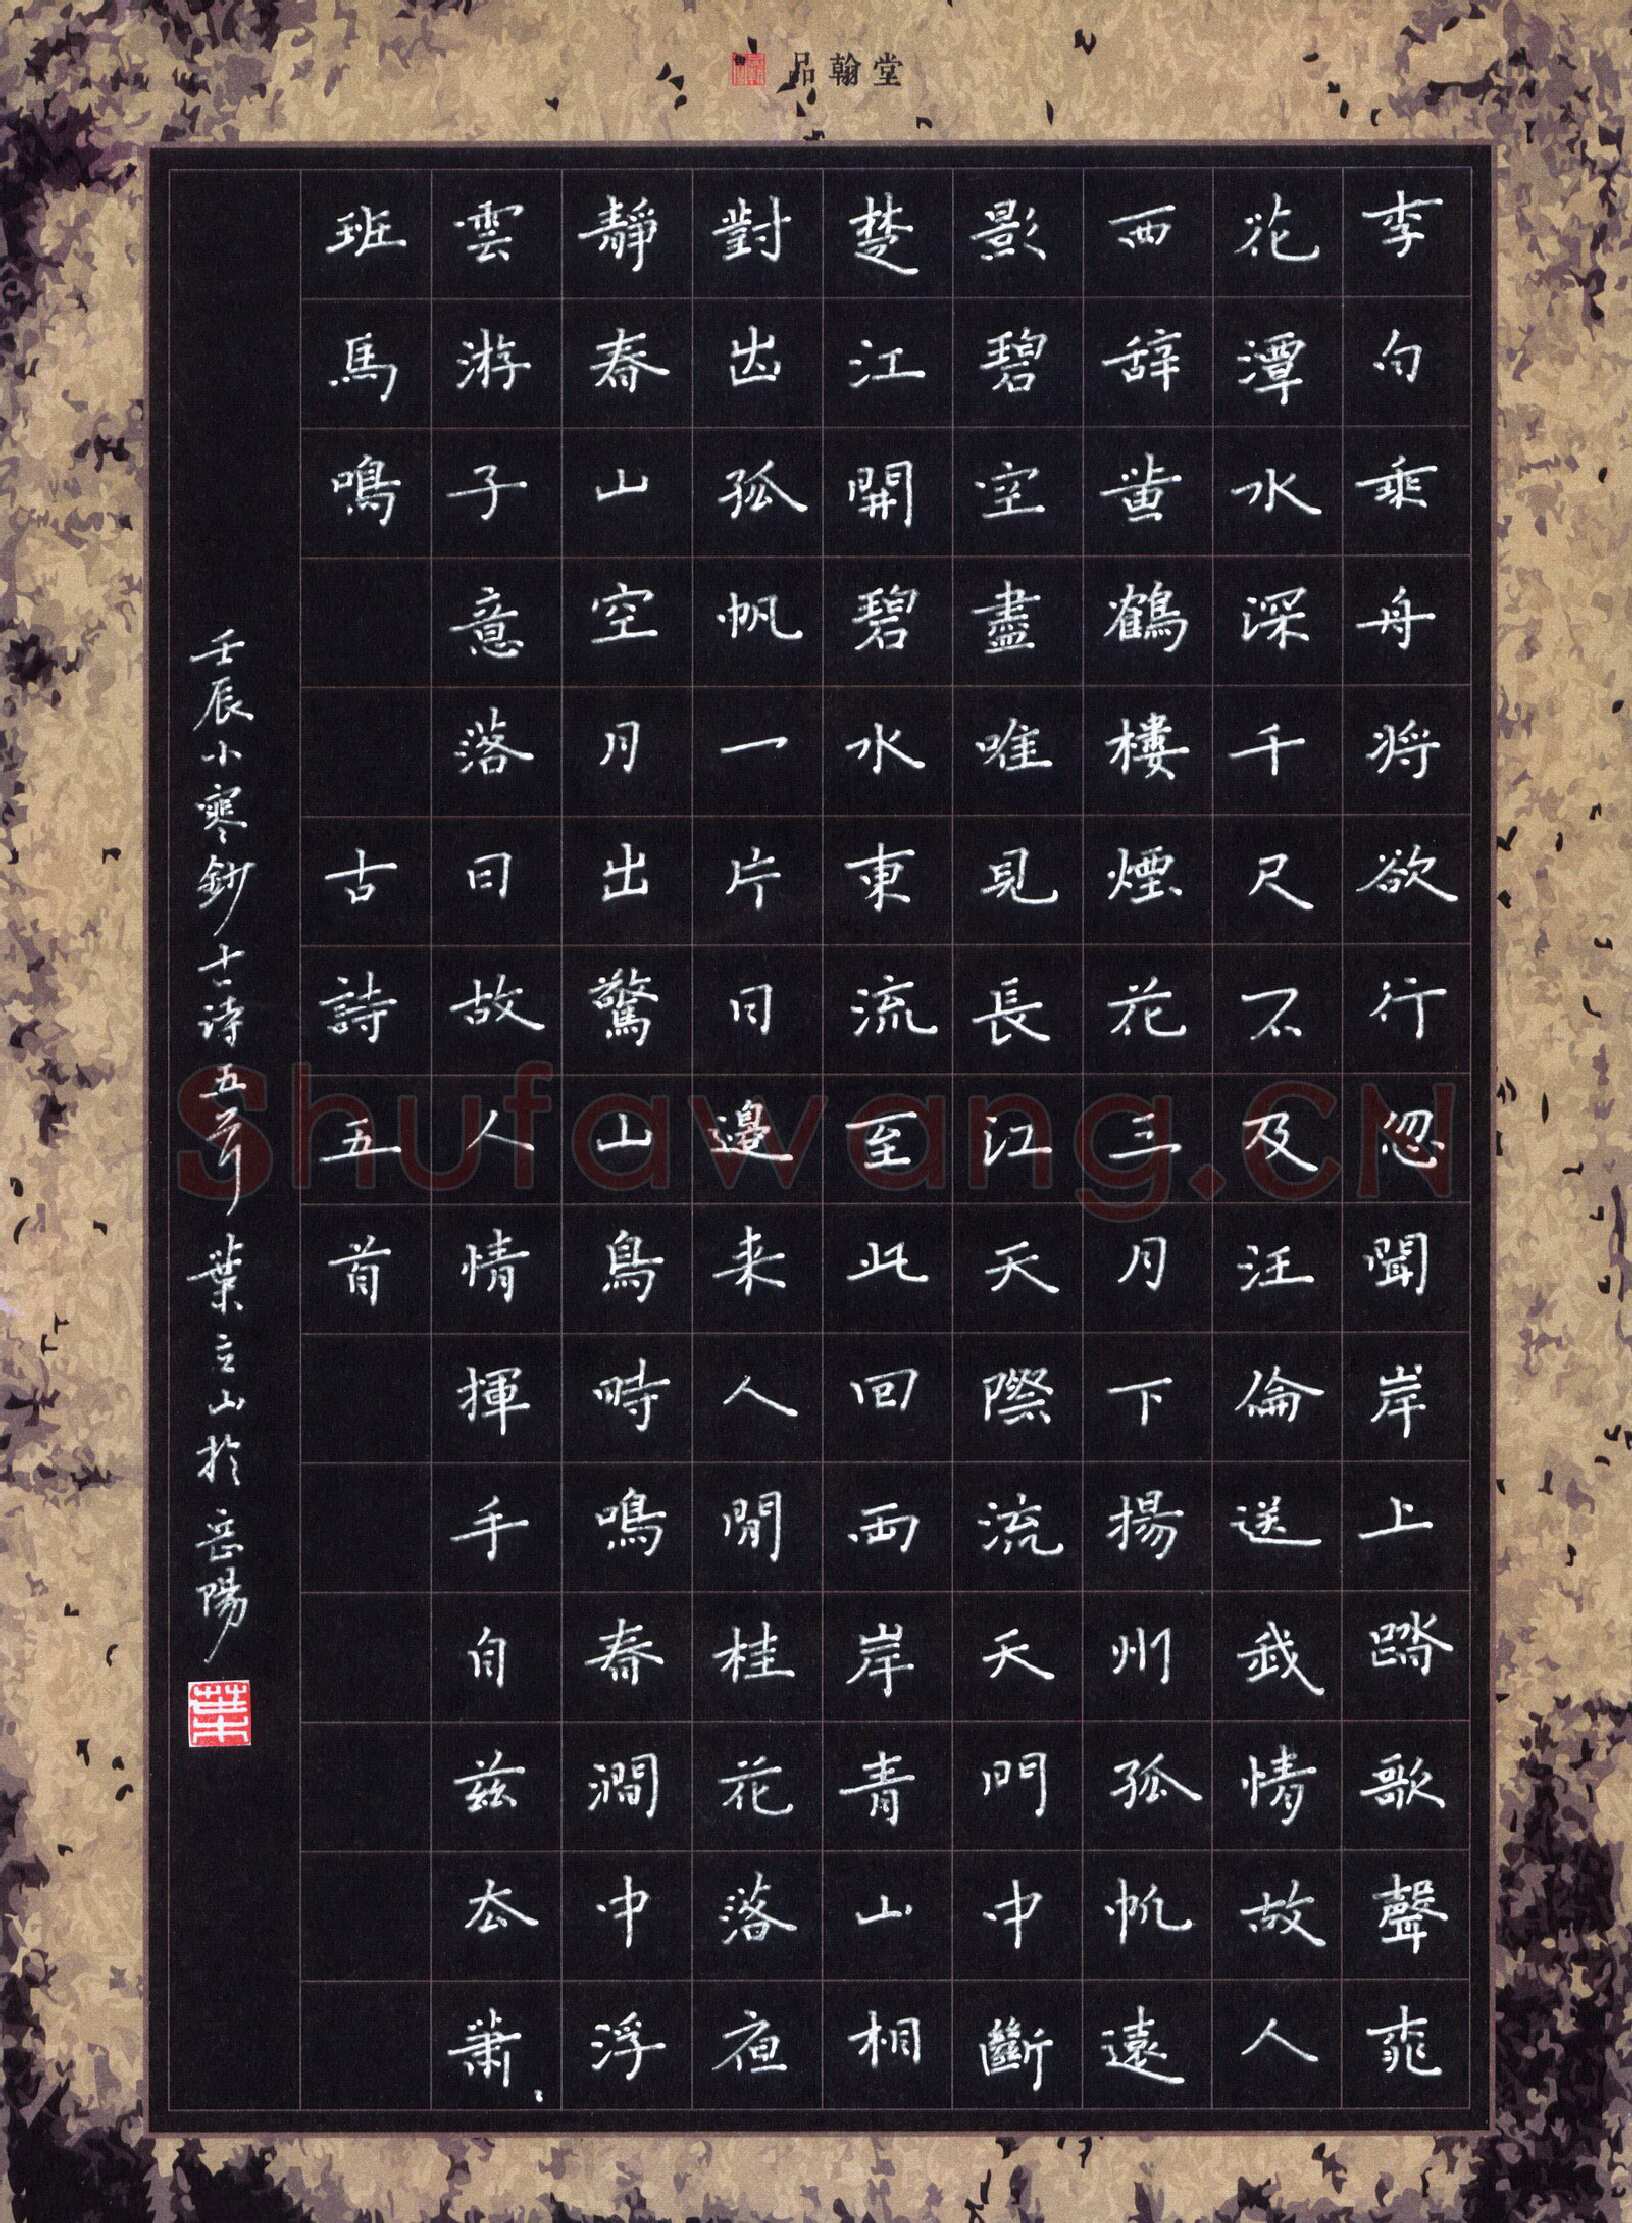 品翰堂
李白乘舟將欲行忽聞岸上踏歌聲桃
花潭水深千尺不及汪倫送我情故人
西辞黄鶴樓煙花三月下揚州孤帆遠
影碧空盡唯見長江天際流天門中斷
楚江開碧水東流至此回兩岸青山相
對出孤帆一片日邊来人閒桂花落夜
靜春山空月出驚山鳥時鳴春澗中浮
雲游子意落日故人情揮手自兹去蕭〻
班馬鳴 古詩五首
壬辰小寒鈔古诗五首 葉立山於岳陽
葉
Shufawang.CN